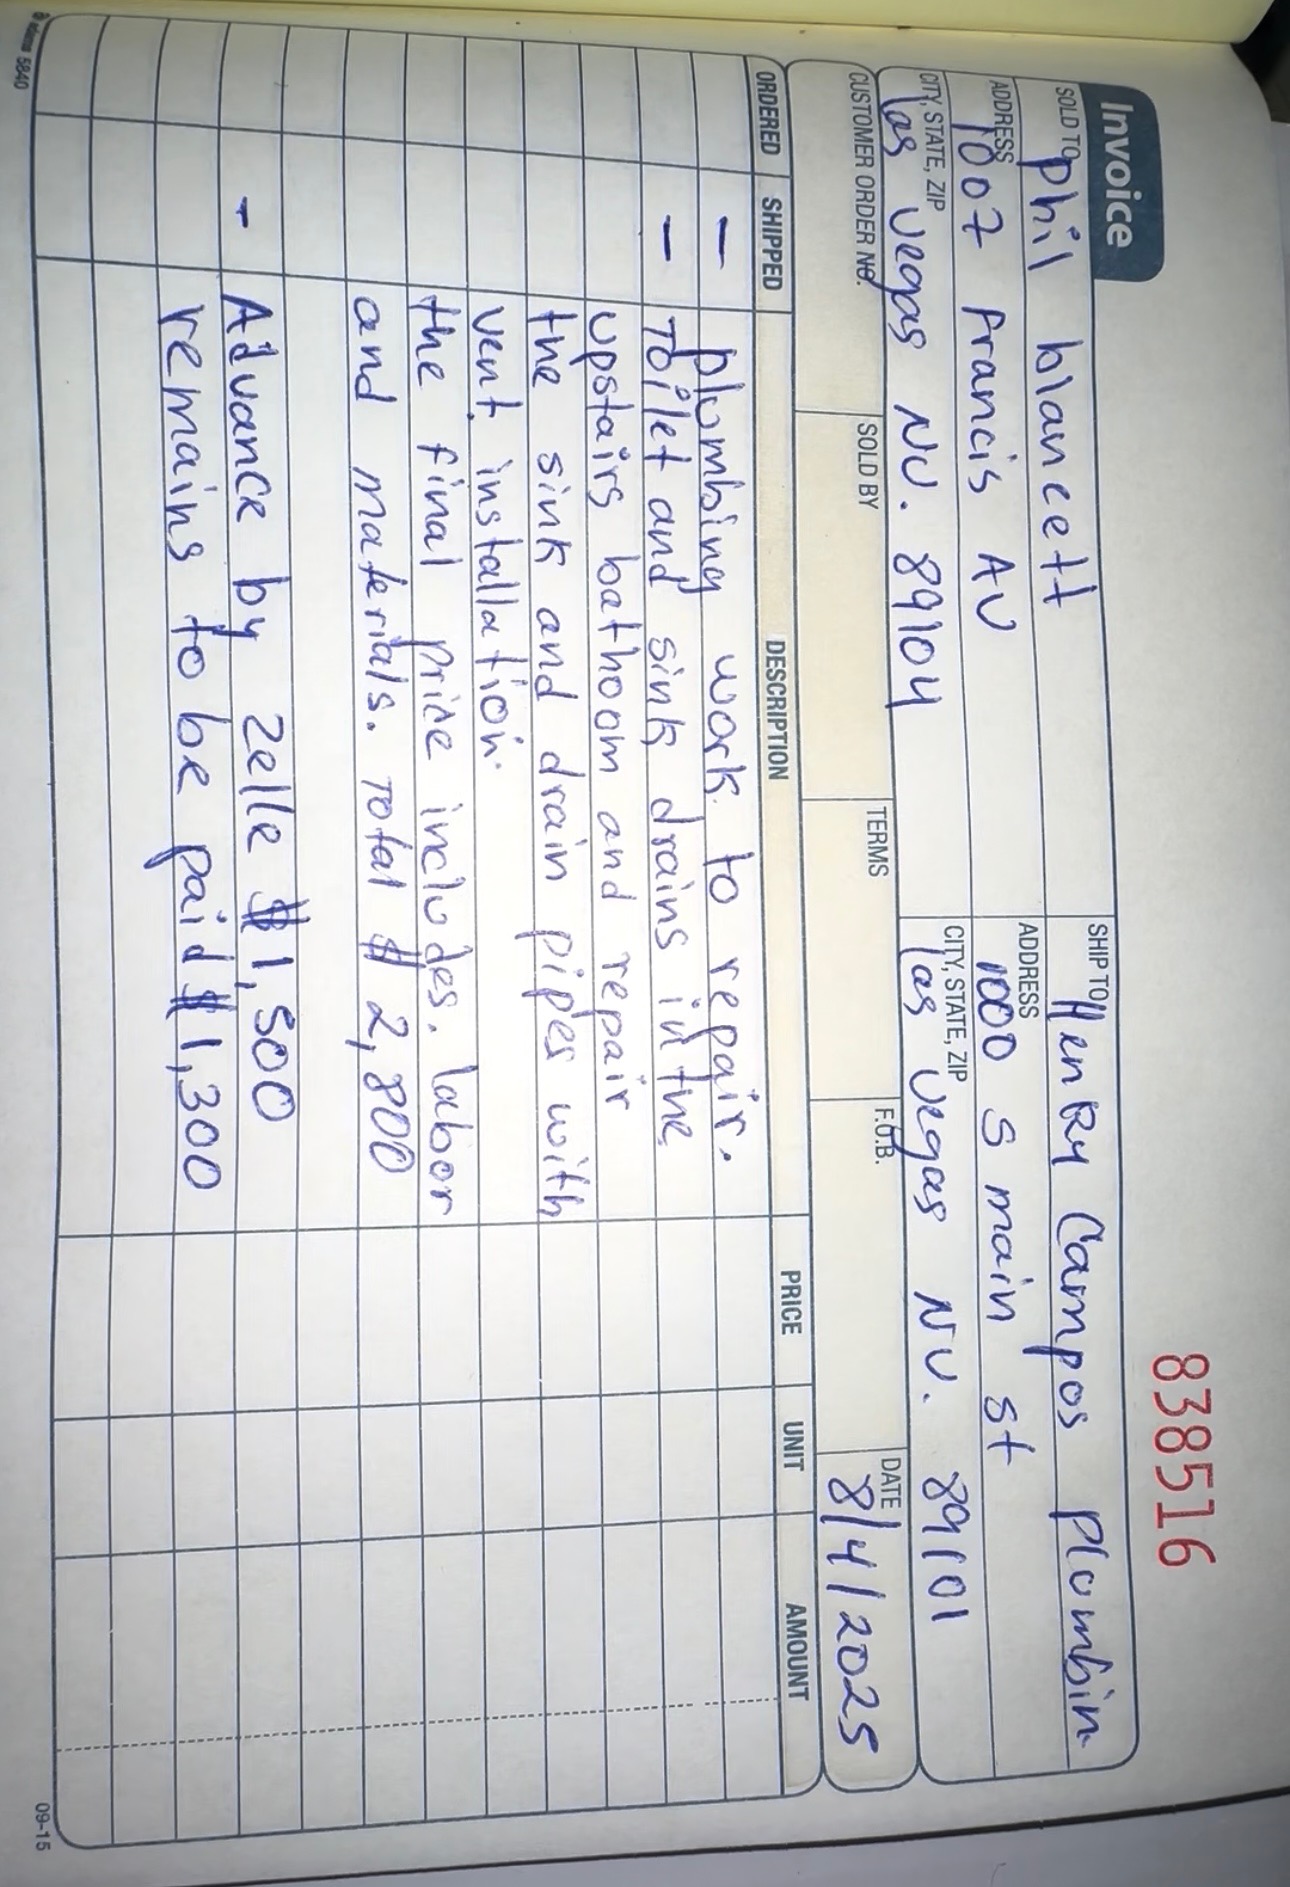 838516
Invoice
SOLD TO phil blancett
ADDRESS 1007 francis AV
CITY, STATE, ZIP las vegas NV. 89104
SHIP TO HenRy Campos Plumbin
ADDRESS 1000 S main st
CITY, STATE, ZIP las vegas NV. 89101
CUSTOMER ORDER NO. SOLD BY TERMS F.O.B. DATE 8/4/2025
ORDERED SHIPPED DESCRIPTION PRICE UNIT AMOUNT
- plumbing work to repair.
- Toilet and sink drains in the
upstairs bathoom and repair
the sink and drain pipes with
vent installation.
the final price includes. labor
and materials. Total $ 2,800
- Advance by zelle $1,500
remains to be paid $1,300
adams 5840
09-15